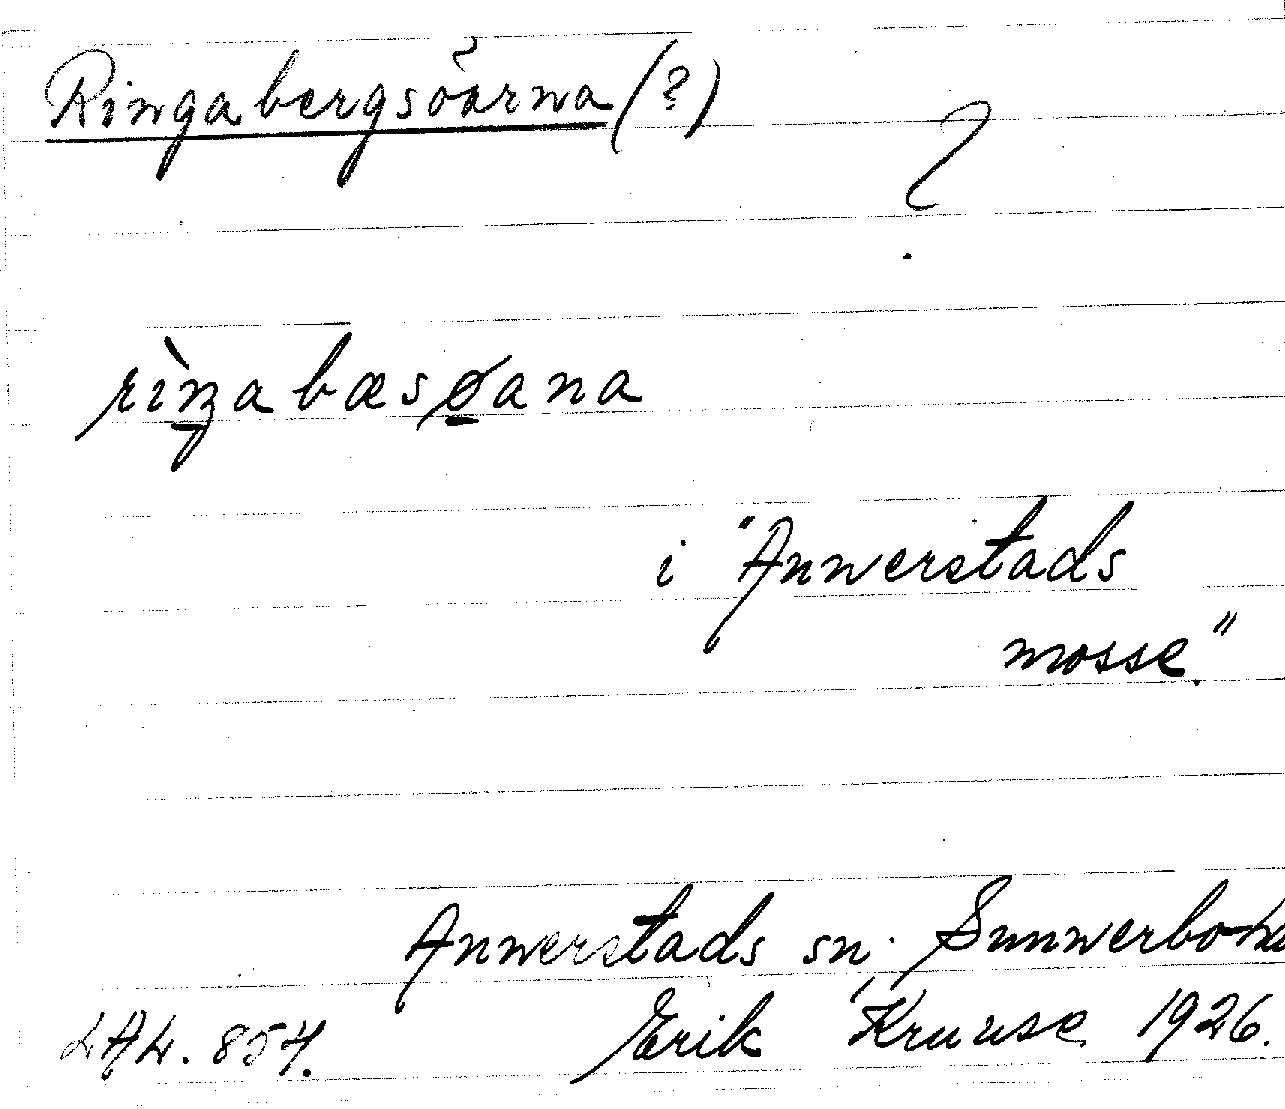 Ringabergsöarna (?)
?
rìŋabæsøana
i "Annerstads
mosse."
Annerstads sn, Sunnerbo hd
LAL. 857. Erik Kruuse 1926.